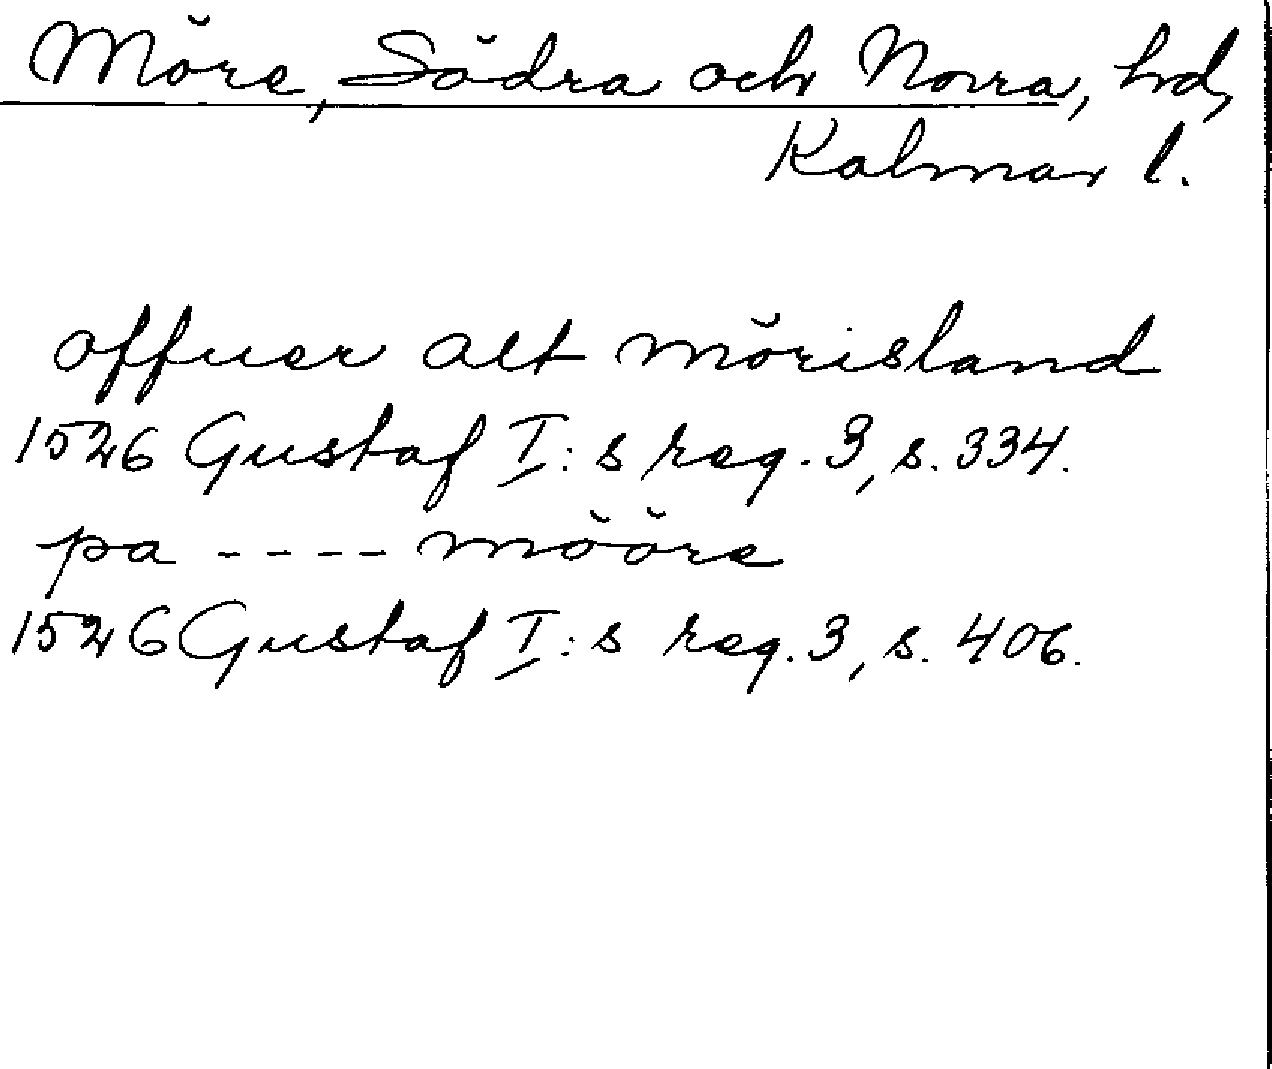 Möre, Södra och Norra, hd,
Kalmar l.
offuer alt mörisland
1526 Gustaf I:s reg. 3, s. 334.
pa ---- mööre
1526 Gustaf I:s reg. 3, s. 406.